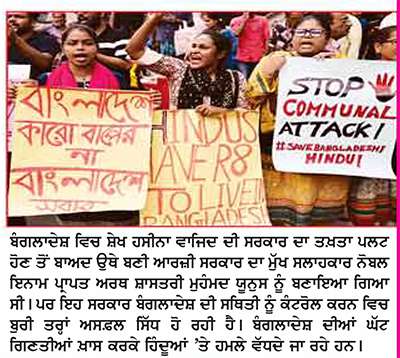 বাংলাদেশ
কারো বাপের
না
বাংলাদেশ
সবার
HINDUS
HAVE R8
TO LIVE IN
BANGLADESH
STOP
COMMUNAL
ATTACK!
#SAVE BANGLADESHI
HINDU!
ਬੰਗਲਾਦੇਸ਼ ਵਿਚ ਸ਼ੇਖ ਹਸੀਨਾ ਵਾਜਿਦ ਦੀ ਸਰਕਾਰ ਦਾ ਤਖ਼ਤਾ ਪਲਟ
ਹੋਣ ਤੋਂ ਬਾਅਦ ਉਥੇ ਬਣੀ ਆਰਜ਼ੀ ਸਰਕਾਰ ਦਾ ਮੁੱਖ ਸਲਾਹਕਾਰ ਨੋਬਲ
ਇਨਾਮ ਪ੍ਰਾਪਤ ਅਰਥ ਸ਼ਾਸਤਰੀ ਮੁਹੰਮਦ ਯੂਨੁਸ ਨੂੰ ਬਣਾਇਆ ਗਿਆ
ਸੀ। ਪਰ ਇਹ ਸਰਕਾਰ ਬੰਗਲਾਦੇਸ਼ ਦੀ ਸਥਿਤੀ ਨੂੰ ਕੰਟਰੋਲ ਕਰਨ ਵਿਚ
ਬੁਰੀ ਤਰ੍ਹਾਂ ਅਸਫ਼ਲ ਸਿੱਧ ਹੋ ਰਹੀ ਹੈ। ਬੰਗਲਾਦੇਸ਼ ਦੀਆਂ ਘੱਟ
ਗਿਣਤੀਆਂ ਖ਼ਾਸ ਕਰਕੇ ਹਿੰਦੂਆਂ 'ਤੇ ਹਮਲੇ ਵੱਧਦੇ ਜਾ ਰਹੇ ਹਨ।